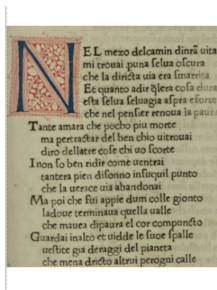 NEL mezo delcamin dinrã uita
mi trouai puna selua oscura
che la diricta uia era smarrita
Et quanto adir glera cosa dura
esta selua seluagia aspra eforte
che nel pensier renoua la paura
Tante amara che pocho piu morte
ma pertractar del ben chio uitrouai
diro dellaltre cose chi uo scorte
I non so ben ridir come uentrai
tantera pien disonno insuquil punto
che la uerace uia abandonai
Ma poi che fui appie dum colle gionto
ladoue terminaua quella ualle
che mauea dipaura el cor compuncto
Guardai inalto et uidde le suoe spalle
uestite gia deraggi del pianeta
che mena dricto altrui perogni calle